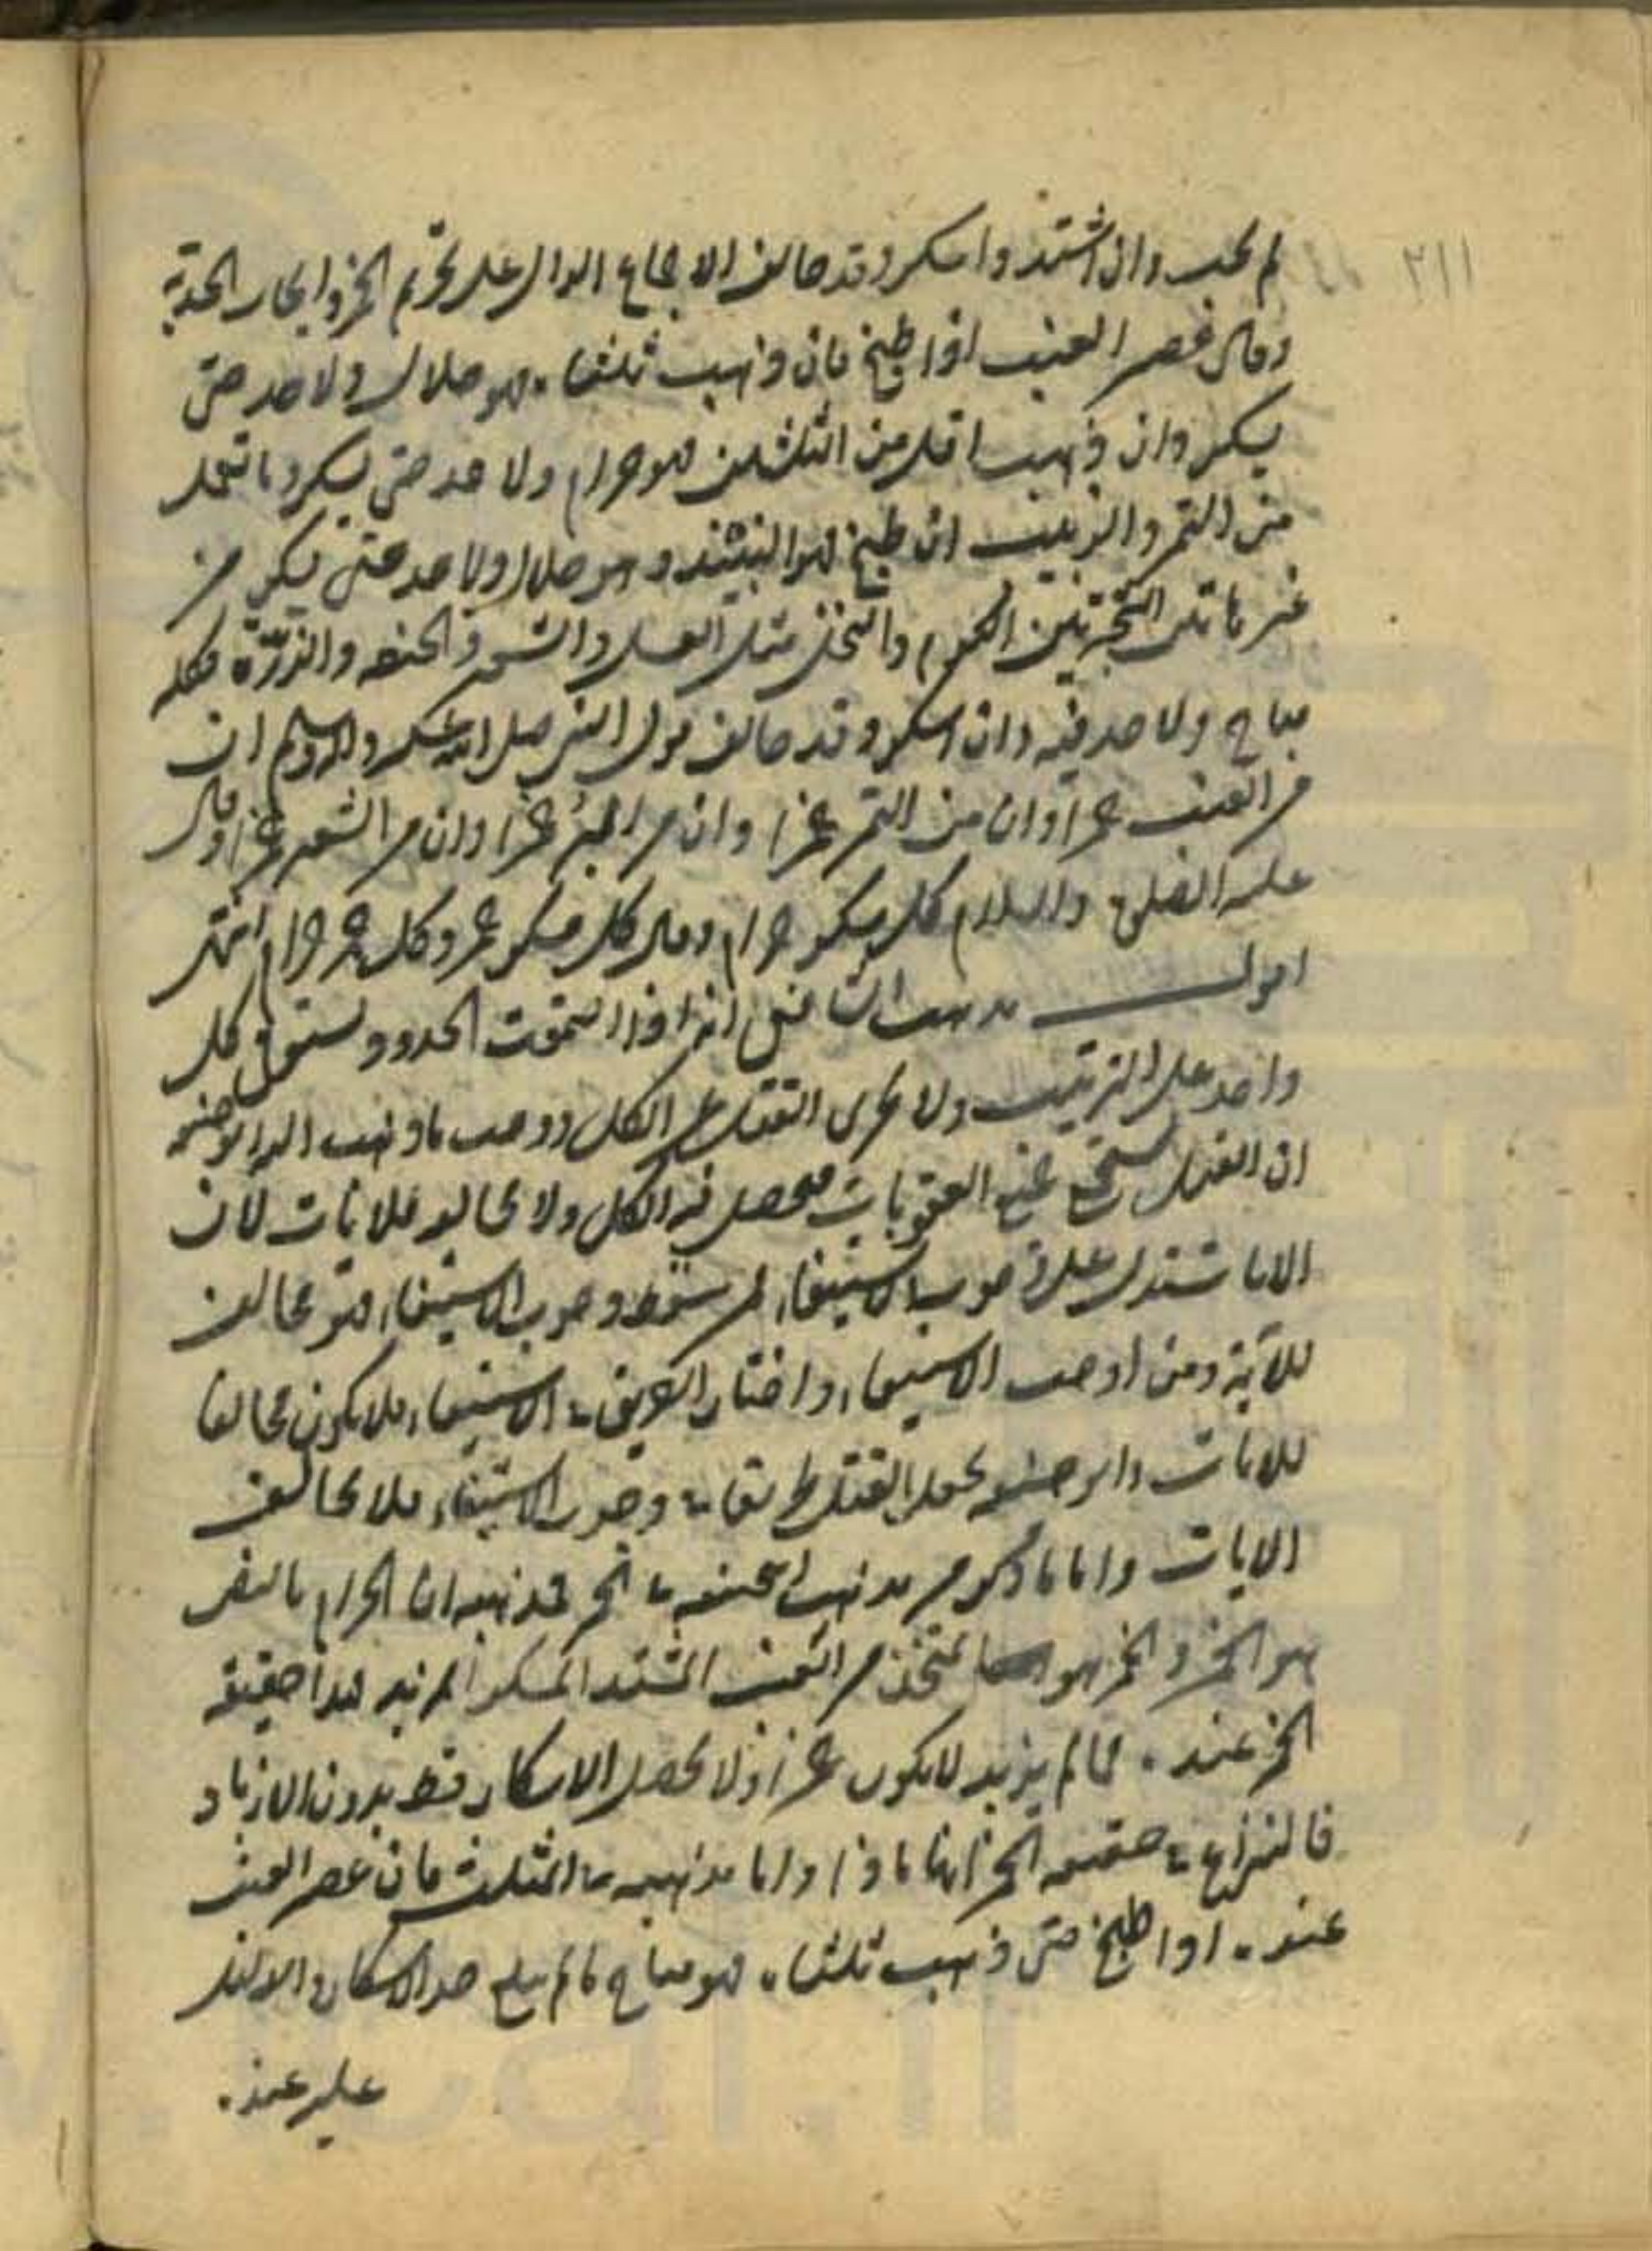 ٢١١
لم يجب وان اشتد واسكر وقد خالف الاجماع الدال على تحريم الخمر وايجاب الحد به
وقال عصير العنب اذا طبخ فان ذهب ثلثاه فهو حلال ولا حد حتى
يسكر وان ذهب اقل من الثلثين فهو حرام ولا حد حتى يسكر وما تعمل
من التمر والزبيب ان طبخ فهو النبيذ وهو حلال ولا حد حتى يسكر من
غير هاتين الشجرتين الكروم والنخل مثل العسل والشعير والحنطة والذرة فكله
مباح ولا حد فيه وان اسكر وقد خالف قول النبي صلى الله عليه واله وسلم ان
من العنب خمرا وان من التمر خمرا وان من البر خمرا وان من الشعير خمرا وقال
عليه الصلوة والسلام كل مسكر حرام وقال كل مسكر خمر وكل خمر حرام انتهى
اقول مذهب الشافعي انه اذا اجتمعت الحدود يستوفى كل
واحد على الترتيب ولا يجزى القتل عن الكل ووجه ما ذهب اليه ابو حنيفة
ان القتل يستجمع جميع العقوبات فيحصل فيه الكل ولا يخالف الآيات لان
الايات تدل على وجوب الاستيفاء لم يسقط وجوب الاستيفاء فهو مخالف
للآية ومن اوجب الاستيفاء واختار الطريق في الاستيفاء فلا يكون مخالفا
للايات وابو حنيفة يجعل القتل طريقا في وجوب الاستيفاء فلا يخالف
الايات واما ما ذكر من مذهب ابي حنيفة في الخمر فمذهبه ان الحرام بالنص
هو الخمر والخمر هو ما يتخذ من العنب المشتد المسكر المزبد هذا حقيقة
الخمر عنده فما لم يزبد لا يكون خمرا ولا يحصل الاسكار فقط بدون الازباد
فالنزاع في حقيقة الخمر انها ماذا واما مذهبه في المثلث فان عصير العنب
عنده اذا طبخ حتى ذهب ثلثاه فهو مباح ما لم يبلغ حد الاسكار
عليه عنده